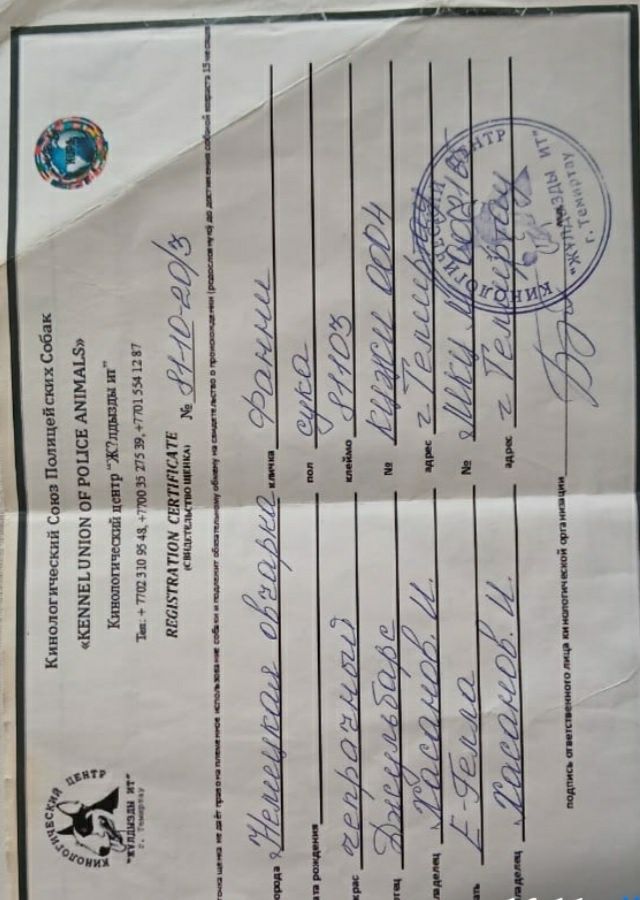 Кинологический Союз Полицейских Собак
«KENNEL UNION OF POLICE ANIMALS»
Кинологический центр "Ж?лдызды ит"
Тел: + 7702 310 95 48, +7700 35 275 39, +7701 554 12 87
REGISTRATION CERTIFICATE
(СВИДЕТЕЛЬСТВО ЩЕНКА)
№ 81-10-20/3
КИНОЛОГИЧЕСКИЙ ЦЕНТР
"ЖУЛДЫЗДЫ ИТ"
г. Темиртау
точка щенка не даёт право на племенное использование собаки и подлежит обязательному обмену на свидетельство о происхождении (родословную) до достижения собакой возраста 15 месяцев
орода Немецкая овчарка кличка Фанни
ата рождения пол сука
крас чепрачный клеймо 81103
тец Джульбарс № КЦЖИ 0004
ладелец Хасанов. И. адрес г. Темиртау
ать Е-Гелла №
ладелец Хасанов. И. адрес г. Темиртау
подпись ответственного лица кинологической организации
КИНОЛОГИЧЕСКИЙ ЦЕНТР
"ЖУЛДЫЗДЫ ИТ"
г. Темиртау